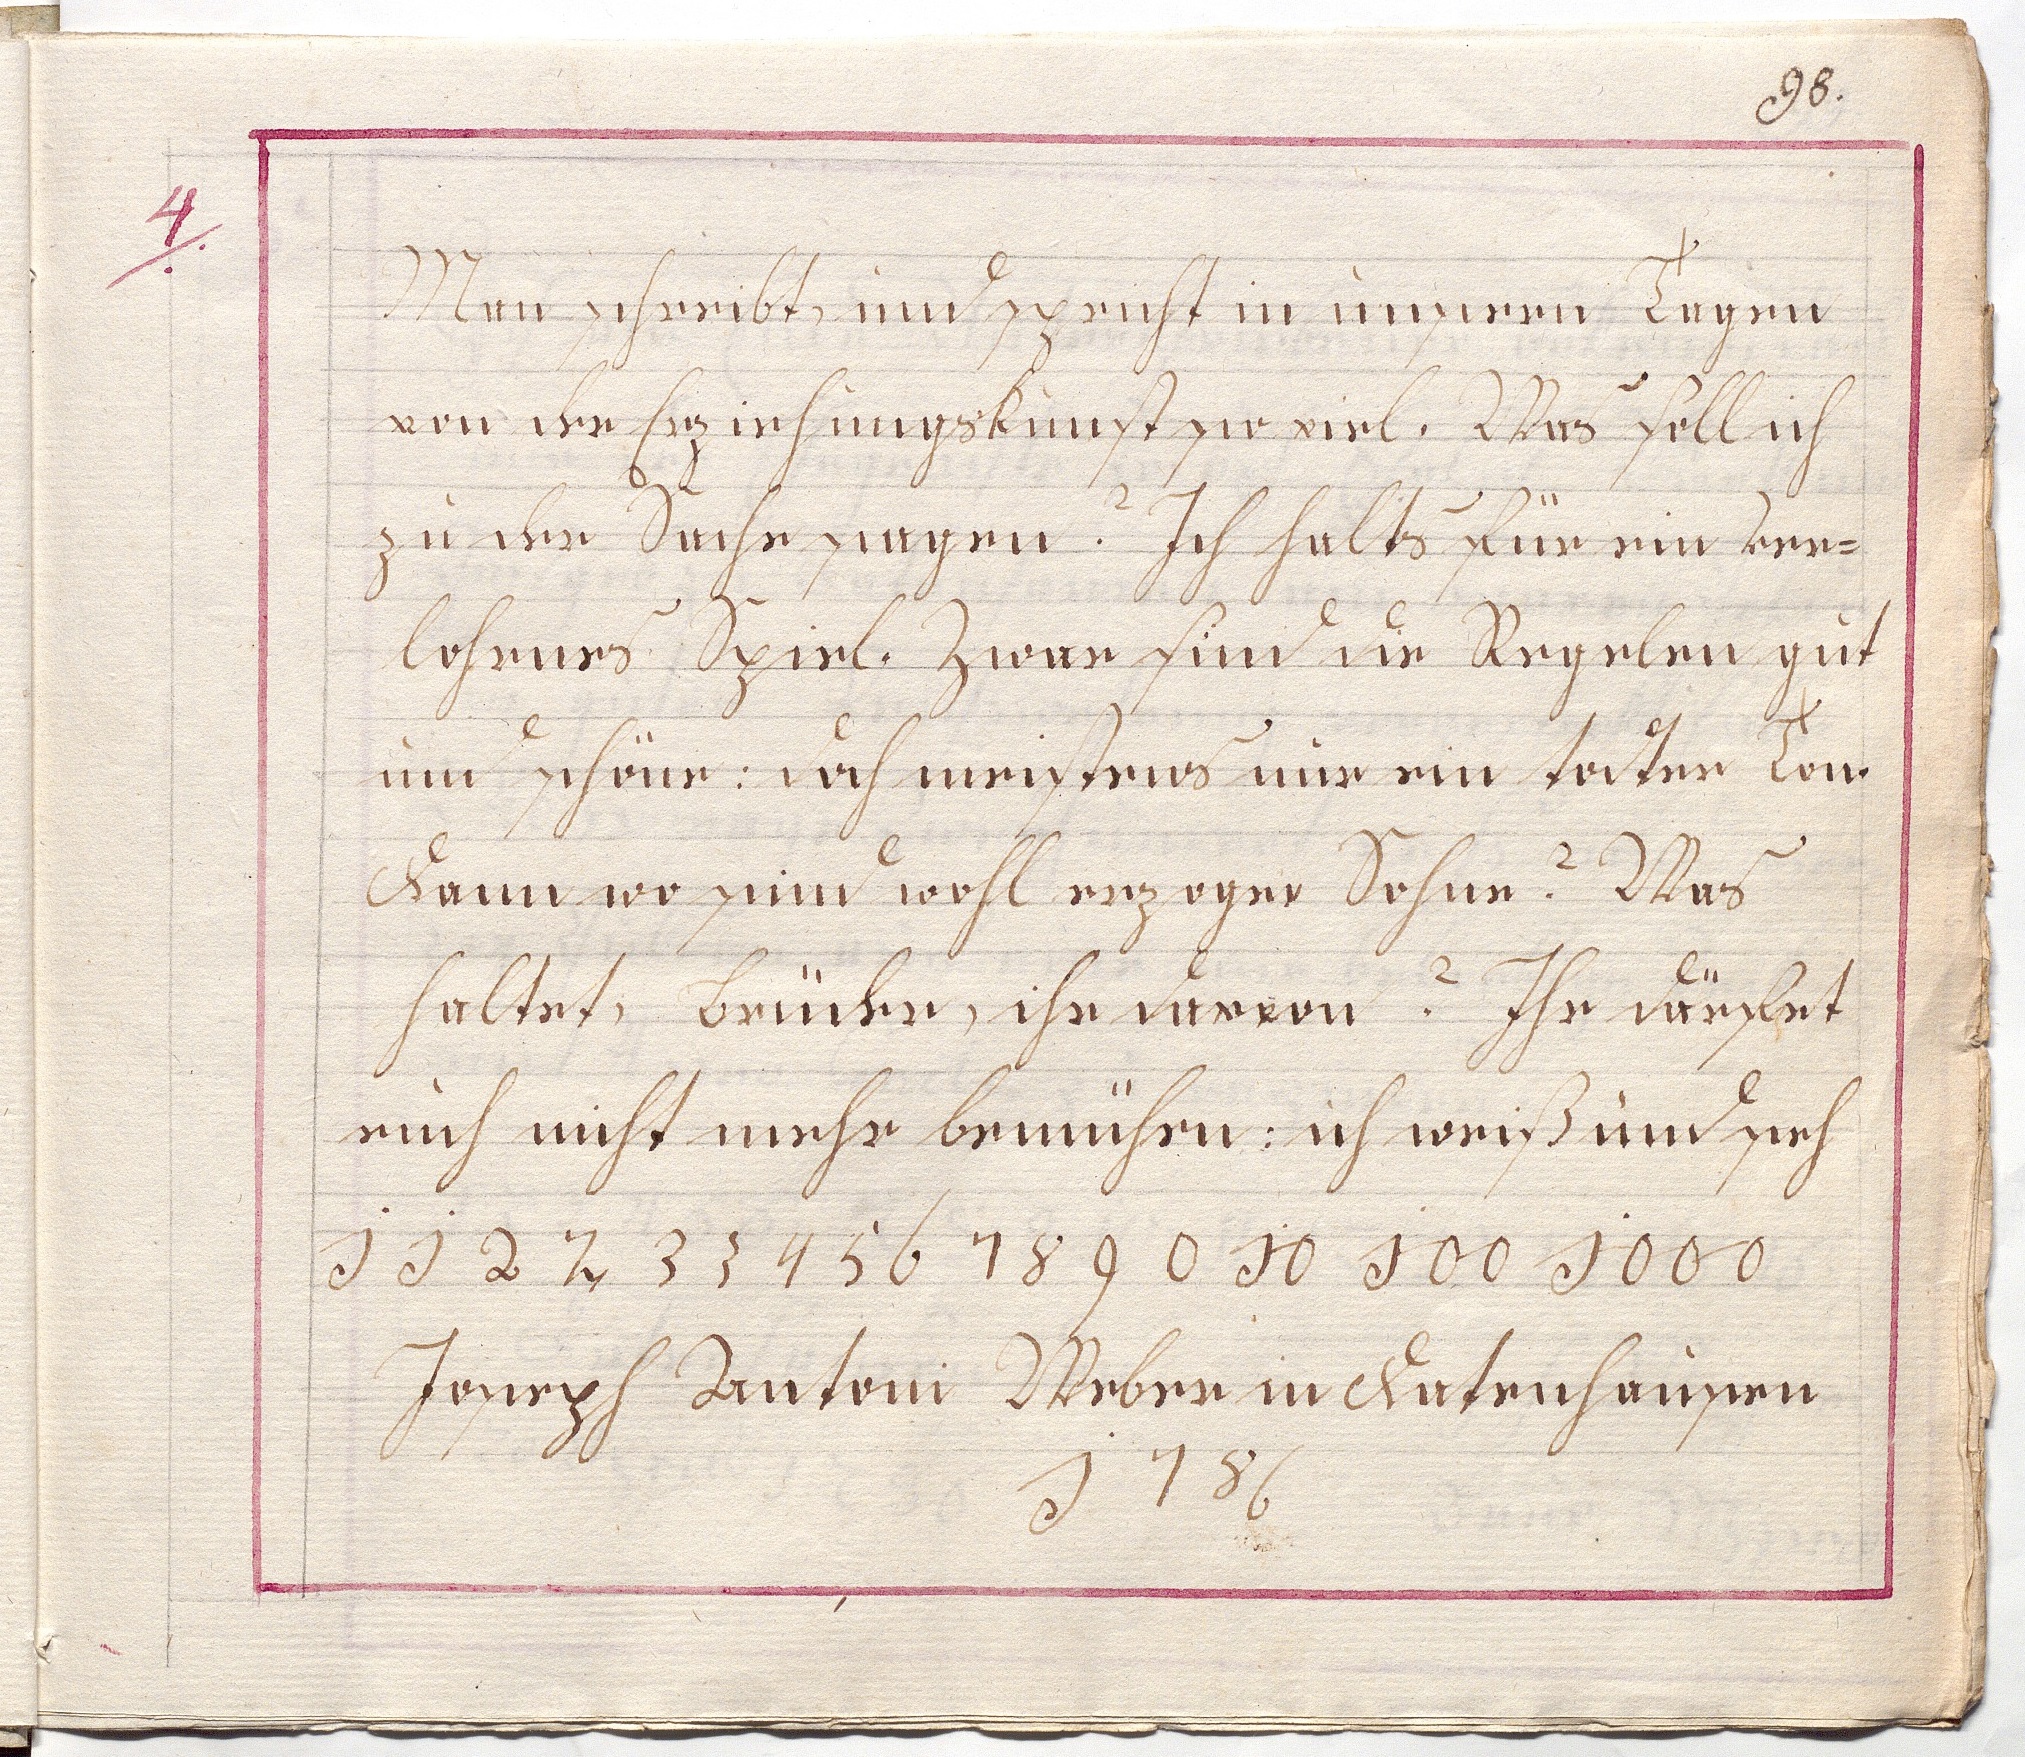 98.
4.
Man schreibt, und spricht in unseren Tagen
von der Erziehungskunst so viel. Was soll ich
zu der Sache sagen? Ich halts für ein ver=
lohrnes Spiel. Zwar sind die Regelen gut
und schöne: doch meistens nur ein todter Ton.
Dann wo sind wohl erzogne Sohne? Was
haltet, Brüder, ihr darvon? Ihr därfet
euch nicht mehr bemühen: ich weiß und seh
1 1 2 2 3 3 4 5 6 7 8 9 0 10 100 1000
Joseph Antoni Weber in Datenhausen
1786